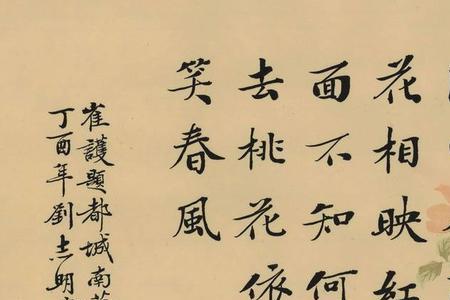 花相映紅
面不知何
去桃花依
笑春風
崔護題都城南
丁酉年劉志明